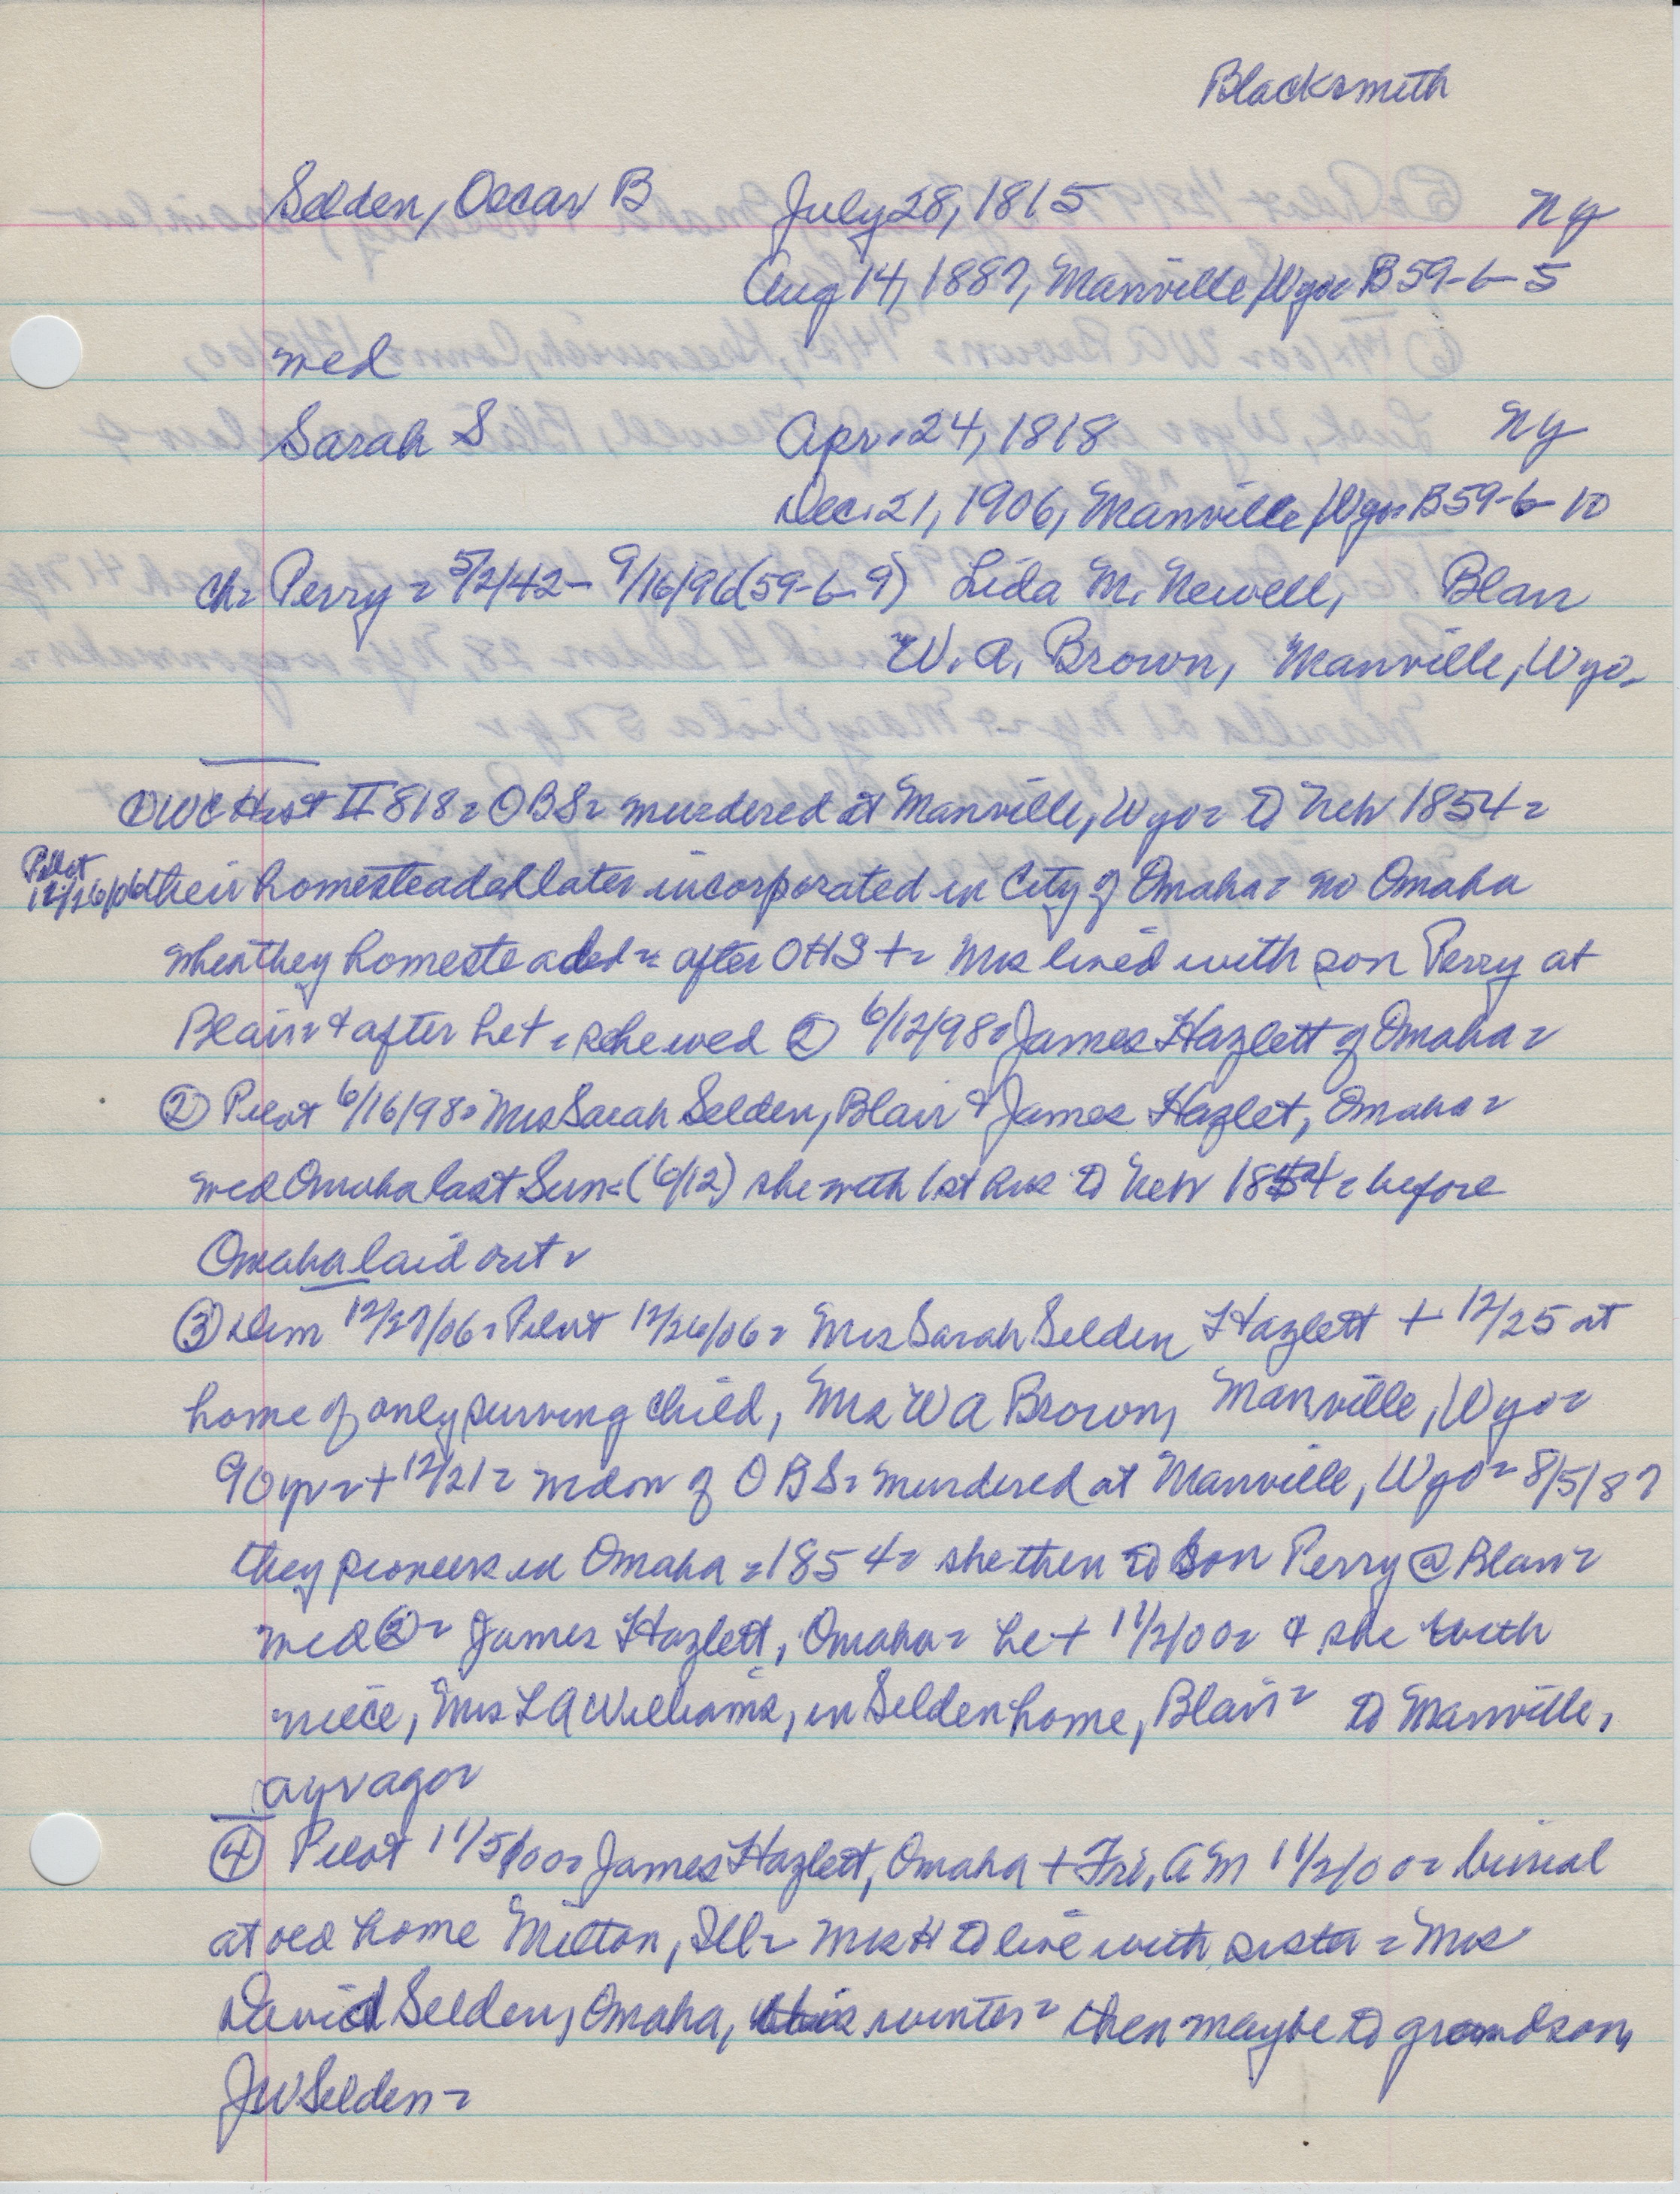 Blacksmith
Selden, Oscar B July 28, 1815 Ny
Aug 14, 1887, Manville, Wyo= B59-6-5
wed
Sarah S Apr. 24, 1818 Ny
Dec. 21, 1906, Manville, Wyo= B59-6-10
ch= Perry = 5/2/42 - 9/16/96 (59-6-9) Lida M. Newell, Blair
W. A. Brown, Manville, Wyo.
① WC Hist II 818= OBS= murdered at Manville, Wyo= to Neb 1854=
Pilot
12/26/06 their homestead later incorporated in City of Omaha= no Omaha
when they homesteaded= after OHS += Mrs lived with son Perry at
Blair= & after he += she wed ② 6/12/98= James Hazlett of Omaha=
② Pilot 6/16/98= Mrs Sarah Selden, Blair & James Hazlet, Omaha=
wed Omaha last Sun= (6/12) she with 1st hus to Neb 1854= before
Omaha laid out=
③ Dem 12/27/06= Pilot 12/26/06= Mrs Sarah Selden Hazlett + 12/25 at
home of only surving child, Mrs W A Brown, Manville, Wyo=
90 yr= + 12/21= widow of OBS= murdered at Manville, Wyo= 8/5/87
they pioneers in Omaha =1854= she then to son Perry @ Blair=
wed ②= James Hazlett, Omaha= he + 11/2/00= & she with
niece, Mrs L A Williams, in Selden home, Blair= to Manville,
a yr ago=
④ Pilot 11/5/00= James Hazlett, Omaha + Fri, AM 11/2/00= burial
at old home Milton, Ill= Mrs H to live with sister = Mrs
David Selden, Omaha, this winter= then maybe to grandson,
JW Selden=